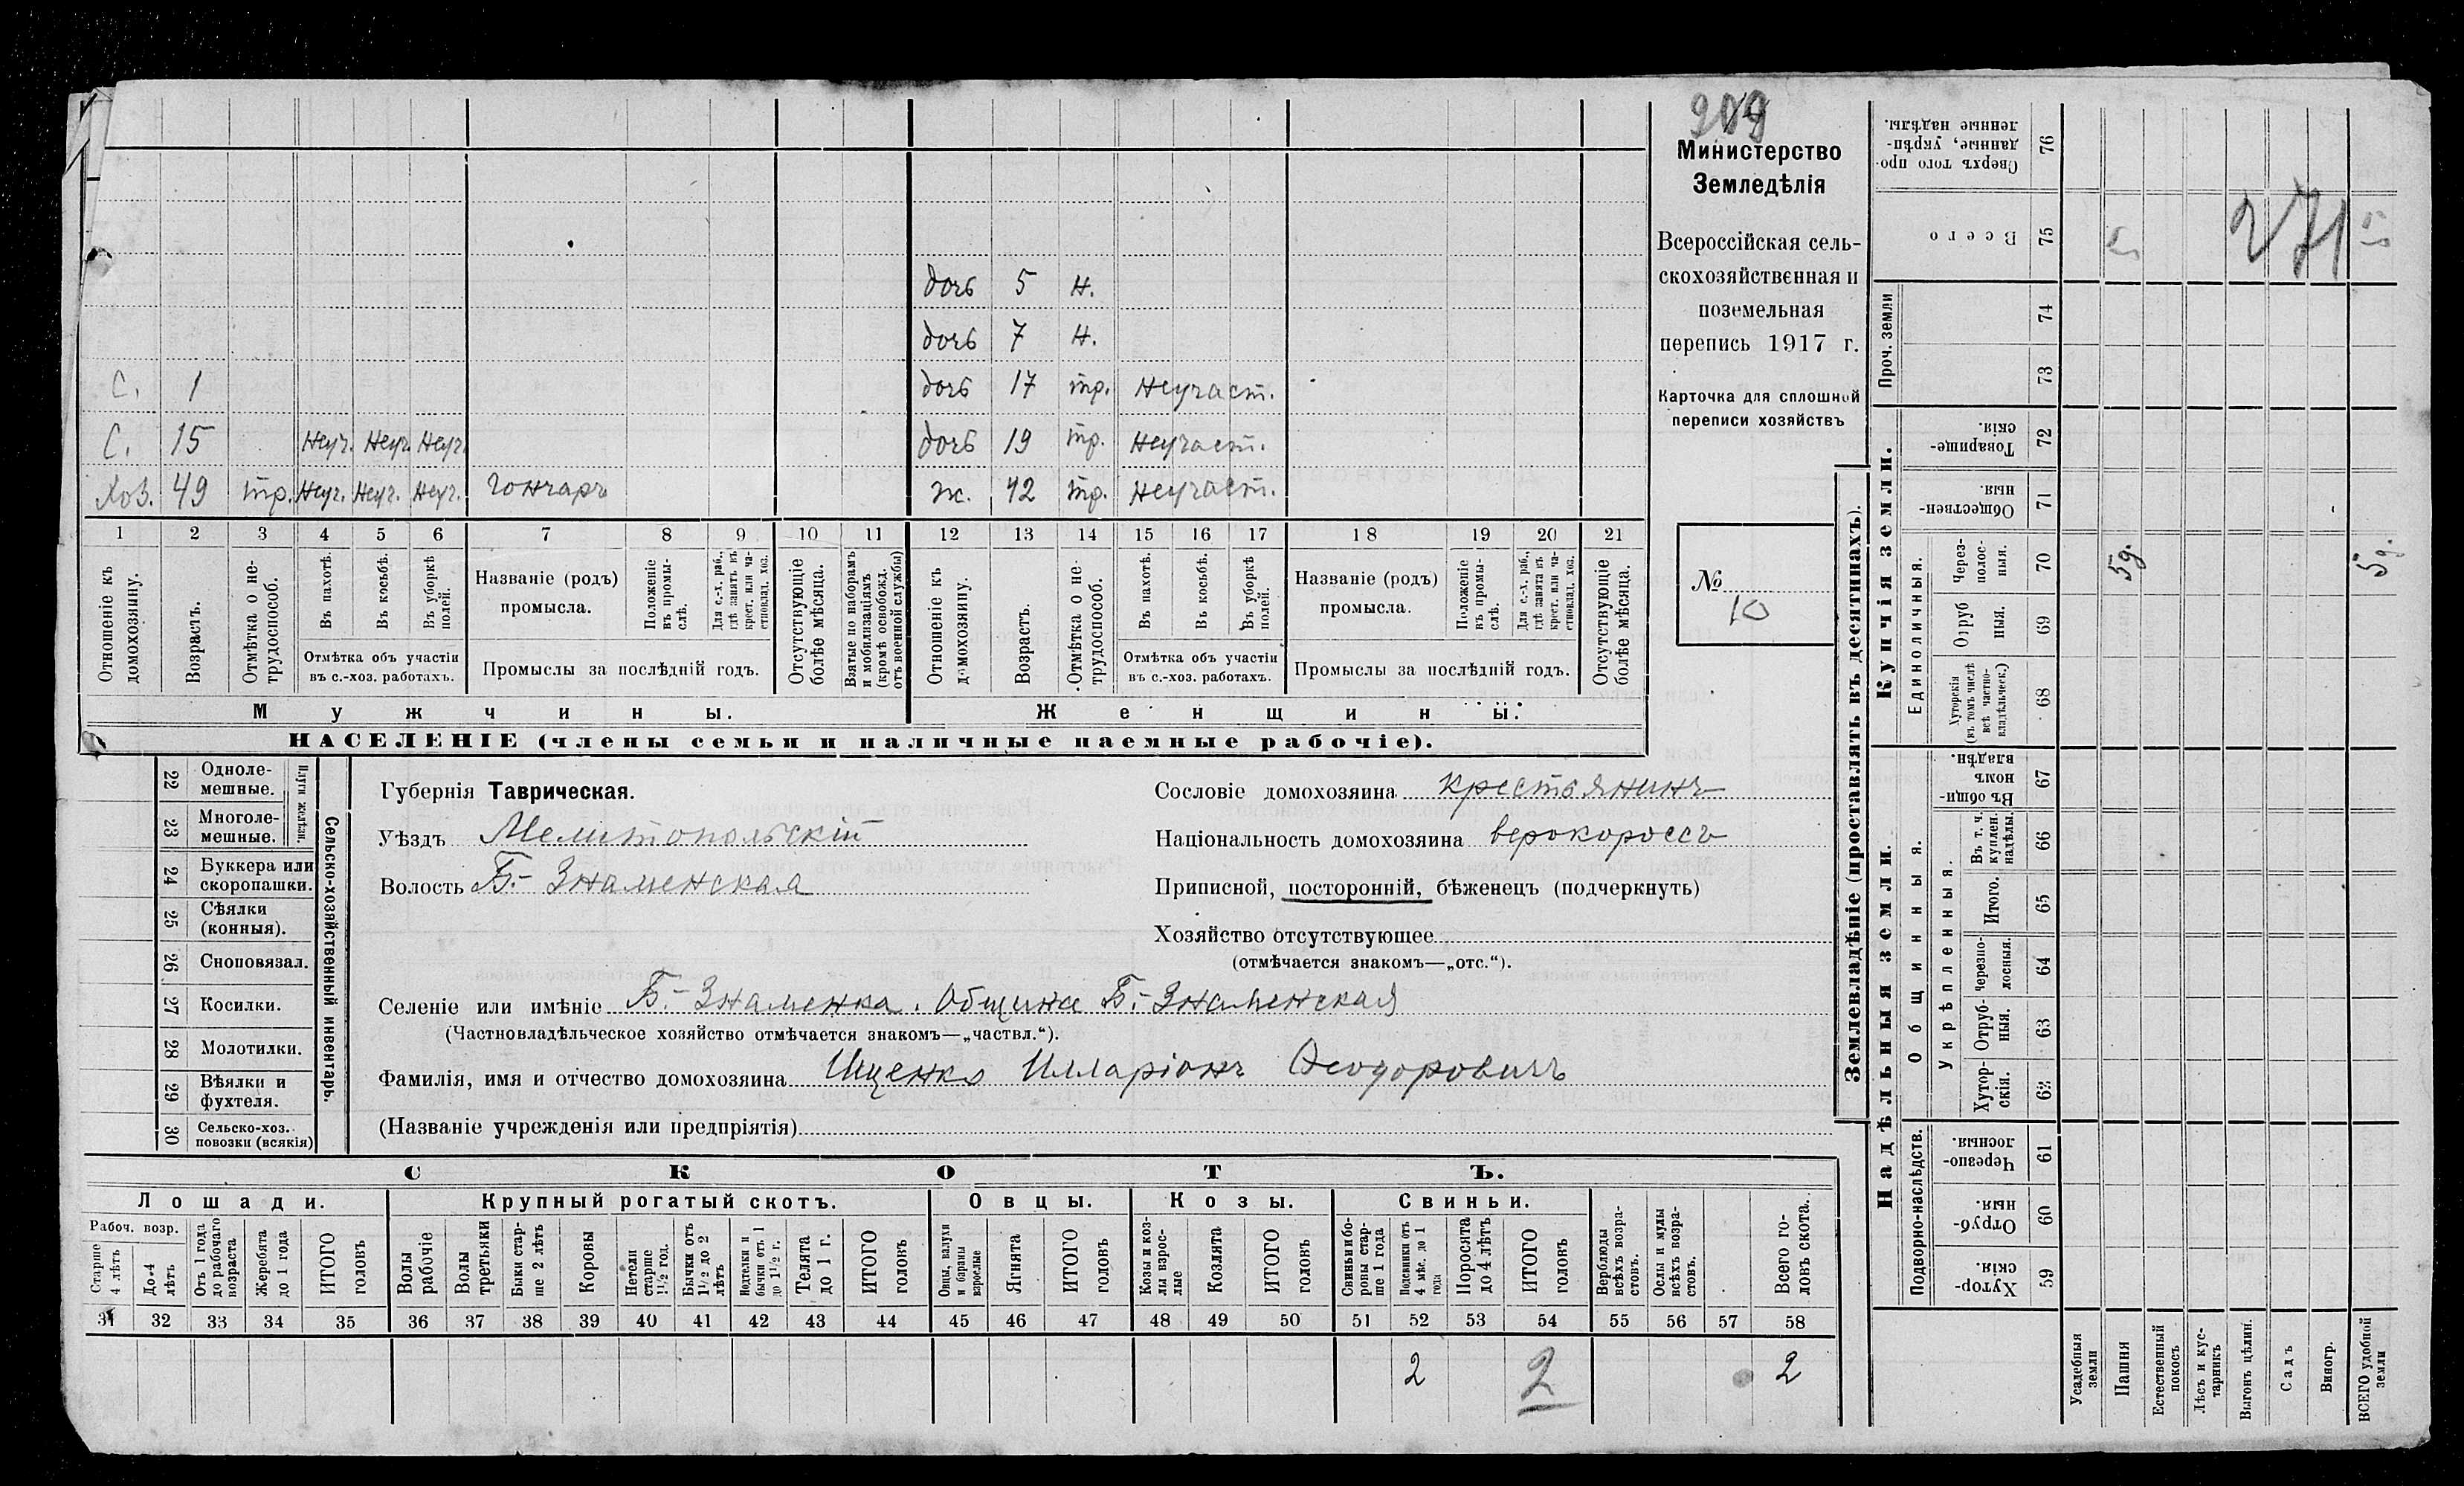 Министерство
Земледѣлія
Всероссійская сель-
скохозяйственная и
поземельная
перепись 1917 г.
Карточка для сплошной
переписи хозяйствъ
№ 10
дочь 5 н.
дочь 7 н.
С. 1 дочь 17 тр. Неучаст.
С. 15 Неуч. Неуч. Неуч. дочь 19 тр. Неучаст.
Хоз. 49 тр. Неуч. Неуч. Неуч. Гончаръ ж. 42 тр. Неучаст.
1 2 3 4 5 6 7 8 9 10 11 12 13 14 15 16 17 18 19 20 21
Отношеніе къ домохозяину.
Возрастъ.
Отмѣтка о не-трудоспособ.
Въ пахотѣ.
Въ косьбѣ.
Въ уборкѣ полей.
Отмѣтка объ участіи
въ с.-хоз. работахъ.
Названіе (родъ)
промысла.
Положеніе въ промы-слѣ.
Для с.-х. раб., гдѣ занятъ въ крест. или ча-стновлад. хоз.
Промыслы за послѣдній годъ.
Отсутствующіе болѣе мѣсяца.
Взятые по наборамъ и мобилизаціямъ (кромѣ освобожд. отъ военной службы)
Отношеніе къ домохозяину.
Возрастъ.
Отмѣтка о не-трудоспособ.
Въ пахотѣ.
Въ косьбѣ.
Въ уборкѣ полей.
Отмѣтка объ участіи
въ с.-хоз. работахъ.
Названіе (родъ)
промысла.
Положеніе въ промы-слѣ.
Для с.-х. раб., гдѣ занята въ крест. или ча-стновлад. хоз.
Промыслы за послѣдній годъ.
Отсутствующіе болѣе мѣсяца.
Мужчины. Женщины.
НАСЕЛЕНІЕ (члены семьи и наличные наемные рабочіе).
Сельско-хозяйственный инвентарь.
Плуги желѣзн.
22 Одноле-мешные.
23 Многоле-мешные.
24 Буккера или скоропашки.
25 Сѣялки (конныя).
26 Сноповязал.
27 Косилки.
28 Молотилки.
29 Вѣялки и фухтеля.
30 Сельско-хоз. повозки (всякія)
Губернія Таврическая.
Уѣздъ Мелитопольскій
Волость Б.-Знаменская
Сословіе домохозяина крестьянинъ
Національность домохозяина верокороссъ
Приписной, посторонній, бѣженецъ (подчеркнуть)
Хозяйство отсутствующее
(отмѣчается знакомъ—„отс.“).
Селеніе или имѣніе Б.-Знаменка. Община Б.-Знаменская
(Частновладѣльческое хозяйство отмѣчается знакомъ—„частвл.“).
Фамилія, имя и отчество домохозяина Ищенко Илларіонъ Ѳеодоровичъ
(Названіе учрежденія или предпріятія)
СКОТЪ.
Лошади. Крупный рогатый скотъ. Овцы. Козы. Свиньи.
Рабоч. возр.
Старше 4 лѣтъ
До 4 лѣтъ
Отъ 1 года до рабочаго возраста
Жеребята до 1 года
ИТОГО головъ
Волы рабочіе
Волы третьяки
Быки стар-ше 2 лѣтъ
Коровы
Нетели старше 1½ год.
Бычки отъ 1½ до 2 лѣтъ
Нодтелки и бычки отъ 1 до 1½ г.
Телята до 1 г.
ИТОГО головъ
Овцы, валухи и бараны взрослые
Ягнята
ИТОГО головъ
Козы и коз-лы взрос-лые
Козлята
ИТОГО головъ
Свиньи и бо-ровы стар-ше 1 года
Подсвинки отъ 4 мѣс. до 1 года
Поросята до 4 лѣтъ
ИТОГО головъ
Верблюды всѣхъ возра-стовъ.
Ослы и мулы всѣхъ возра-стовъ.
Всего го-ловъ скота.
31 32 33 34 35 36 37 38 39 40 41 42 43 44 45 46 47 48 49 50 51 52 53 54 55 56 57 58
2 2 2
Землевладѣніе (проставлять въ десятинахъ).
Надѣльныя земли. Купчія земли.
Проч. земли
Сверхъ того про-данные, укрѣп-ленные надѣлы. 76
Всего 75
74
73
Товарище-скія. 72
Обществен-ныя. 71
Единоличныя.
Через-полос-ныя. 70
Отруб ныя. 69
Хуторскія (въ томъ числѣ всѣ частно-владѣльческ.) 68
Въ общи-номъ владѣн. 67
Общинныя.
Укрѣпленныя.
Въ т. ч. куплен. надѣлы. 66
Итого. 65
Черезпо-лосныя. 64
Отруб-ныя. 63
Хутор-скія. 62
Подворно-наслѣдств.
Черезпо-лосныя. 61
Отруб-ныя. 60
Хутор-скія. 59
Усадебныя земли
Пашня
Естественный покосъ
Лѣсъ и кус-тарникъ
Выгонъ цѣлин.
Садъ
Виногр.
ВСЕГО удобной земли
5д. 5д.
5 5
271